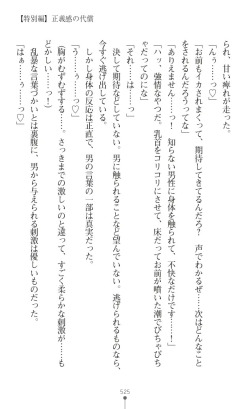 【特別編】正義感の代償
られ、甘い痺れが走った。
「んぅ……っ♡」
「お前もイカされまくって、期待してるんだろ？　声でわかるぜ……次はどんなこと
をされるんだろうってな」
「ありえません……っ！　知らない男性に身体を触れられて、不快なだけです……！」
「ハッ、強情なやつだ。乳首をコリコリにさせて、床だってお前が噴いた潮でびちゃびち
ゃだってのにな」
　決して期待などしていない。男に触られることなど望んでいない。逃げられるものなら、
今すぐ逃げ出している。
　しかし身体の反応は正直で、男の言葉の一部は真実だった。
「うぅ……ぅ……っ♡」
（胸がむずむずする……。さっきまでの激しいのと違って、すごく柔らかな刺激が……も
どかしい……っ！）
　乱暴な言葉づかいとは裏腹に、男から与えられる刺激は優しいものだった。
「はぁ……ぅ……っ♡」
525